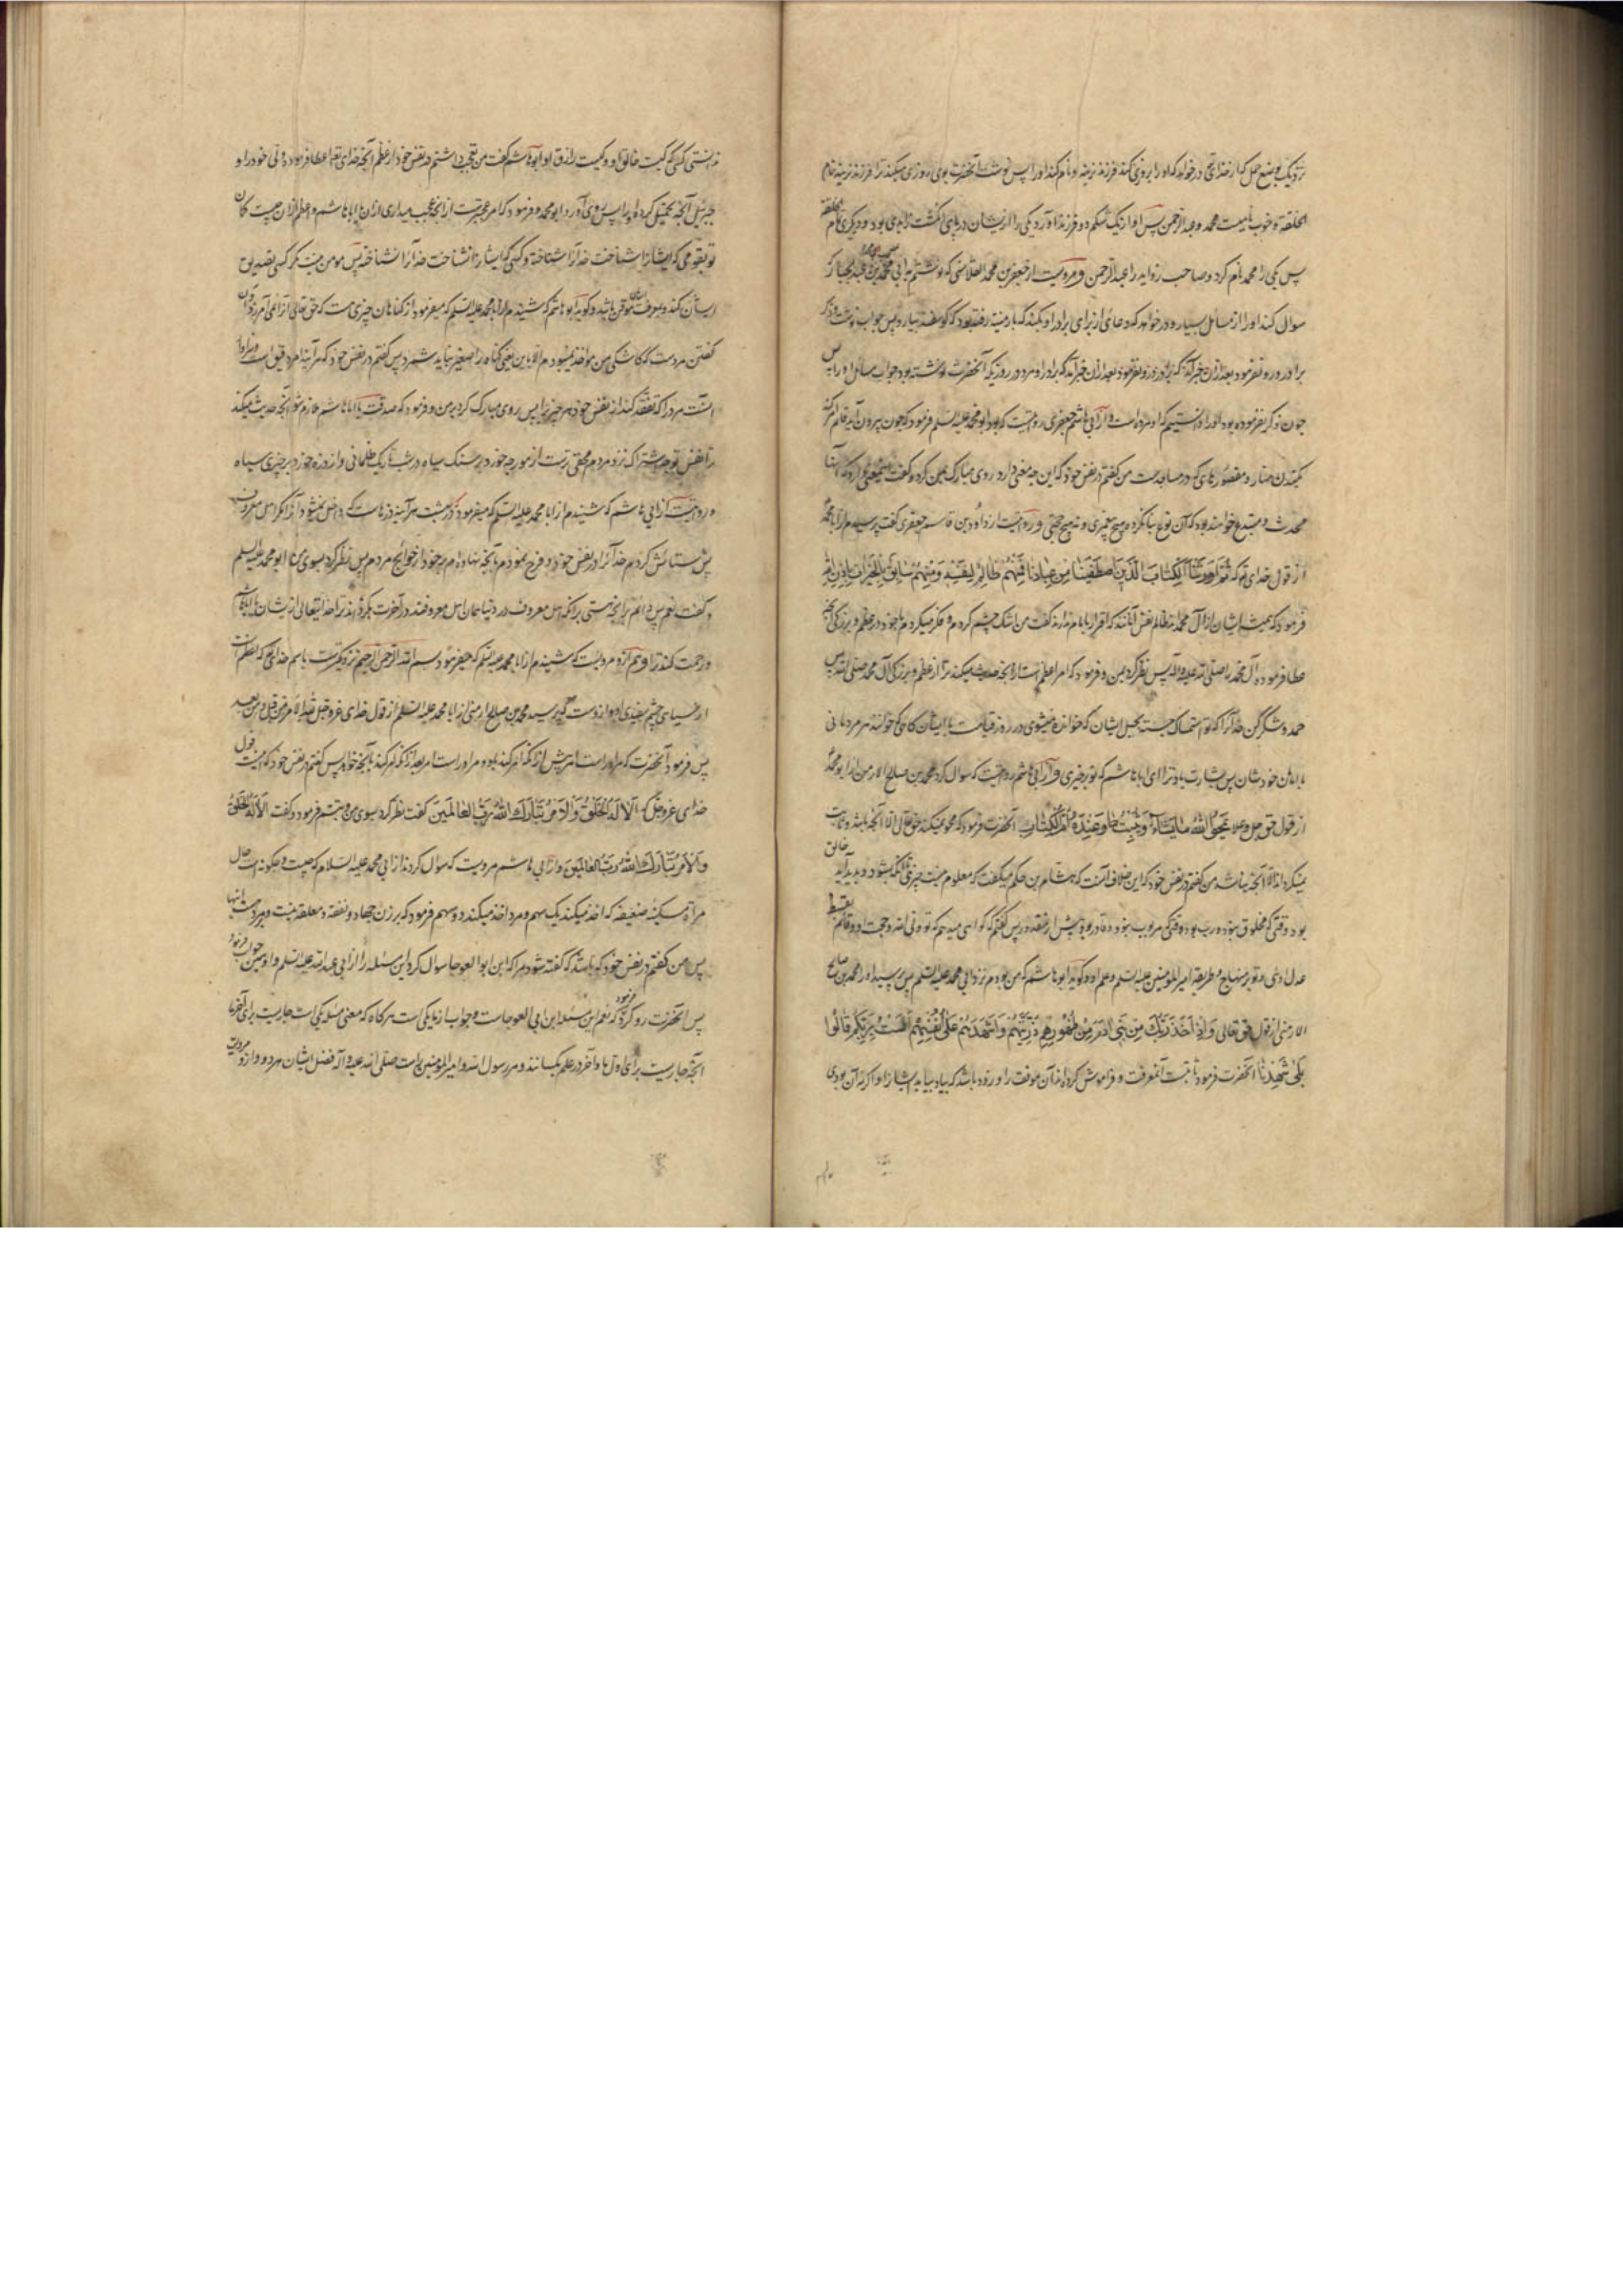 نزدیک بوضع حمل که از خدایتعالی درخواهد که او را روزی کند فرزند نرینه و نام کند او را پس نوشت آنحضرت بوی روزی میکند ترا فرزند نرینه تمام
الخلقة و خوب نامیست محمد و عبدالرحمن پس او از یک شکم دو فرزند آورد یکی را از ایشان در پای انگشت زیادی بود و دیگری تمام الخلقة
پس یکی را محمد نام کرد و صاحب زواید را عبدالرحمن و مرویست از جعفر بن محمد القلانسی که نوشتم به ابی محمد
سوال کند او را از مسائل بسیار و درخواهد که دعائی از برای برادر او بکند که بارمنیه رفته بود که گوسفند بیارد پس جواب نوشت و ذکر
برادر او نفرمود بعد ازان خبر آمد که برادر او مرد در روزیکه آنحضرت نوشته بود جواب مسائل او را پس
چون ذکر نفرموده بود او را دانستیم که او مرده است و از ابی هاشم جعفری روایتست که بود ابو محمد علیه السلم فرمود که چون بیرون آید قائم امر کند
بکندن منار و مقصورهای که در مساجدست من گفتم در نفس خود که این چه معنی دارد روی مبارک بمن کرد و گفت معنی دارد که اینها
محدث و مبتدع خواهند بود که آن نوع بنا نکرده هیچ پیغمبری و نه هیچ حجتی و روایتست از داود بن قاسم جعفری گفت پرسیدم از ابا محمد
از قول خدای تع که ثُمَّ اَورَثنَا الکِتابَ الَّذینَ اصطَفَینا مِن عِبادِنا فَمِنهُم ظالِمٌ لِنَفسِه وَمِنهُم سابِقٌ بِالخَیراتِ بِاِذنِ اللهِ
فرمود که همیشه ایشان از آل محمدند ظالم نفس آنانند که اقرار بامام ندارند گفت من اشک چشم کردم و فکر میکردم با خود در عظم و بزرگی آنچه
عطا فرموده آل محمد را صلی الله علیه و اله پس نظر کرد بمن و فرمود که امر اعظم است از آنچه حدیث میکند ترا از عظم و بزرگی آل محمد صلی الله علیه پس
حمد و شکر کن خدا را که تو استمساک جسته بحبل ایشان که خوانده میشوی در روز قیامت با ایشان گاهی که خوانند هر مردمانی
با امامان خودشان پس بشارت باد ترا ای ابا هاشم که تو بر خیری و از ابی هاشم روایتست که سوال کرد محمد بن صالح الارمنی از ابو محمد
از قول حق جل و علا یَمحُوا اللهُ ما یَشاءُ وَیُثبِتُ وَعِندَهُ اُمُّ الکِتابِ آنحضرت فرمود که محو میکند حق تعالی الا آنچه باشد و ثابت
نمیگرداند الا آنچه نباشد من گفتم در نفس خود که این خلاف آنست که هشام بن حکم میگفت که معلوم نیست چیزی تا آنکه بشود و پدید آید خالق
بود وقتی که مخلوق نبود و رب بود وقتی که مربوب نبود و قادر بود پیش از مقدور پس گفتم که گواهی میدهم که تو ولی الله و حجت او و قائم بقسط
عدل اوئی و تو بر منهاج و طریقه امیر المومنین علیه السلم و علم او و گوید ابو هاشم که من بودم نزد ابی محمد علیه السلم پس پرسید او را محمد بن صالح
الارمنی از قول حق تعالی وَاِذ اَخَذَ رَبُّکَ مِن بَنی آدَمَ مِن ظُهورِهِم ذُرِّیَّتَهُم وَاَشهَدَهُم عَلی اَنفُسِهِم اَلَستُ بِرَبِّکُم قالُوا
بَلی شَهِدنا آنحضرت فرمود ثابتست آنمعرفت و فراموش کرده اند آن موقف را و زود باشد که بیاد بیاید ایشان را و اگر نه آن بودی
ندانستی کسی که کیست خالق او و کیست رازق او ابو هاشم گفت من تعجب داشتم در نفس خود از عظم آنچه خدای تع اعطا فرموده ولی خود را و
آنچه تحمیل کرده او را پس روی آورد ابو محمد و فرمود که امر عجبترست از آنچه عجب میداری ازان یا ابا هاشم و اعظم ازان چیست گمان
تو بقومی که ایشان را شناخت خدا را شناخته و کسی که ایشان را نشناخت خدا را نشناخته پس مومن نیست مگر کسی تصدیق
ایشان کند و بمعرفت ایشان موقن باشد و گوید ابو هاشم که شنیدم از ابا محمد علیه السلم که میفرمود از گناهان چیزی هست که حق تعالی آنرا نمی آمرزد آن
گفتن مردست که کاشکی من مواخذ نمیشدم الا باین یعنی گناه را صغیر نباید شمرد پس گفتم در نفس خود که هر آینه امر دقیق است و سزاوار
آنست مرد را که تفقد کند از نفس خود هر چیز را پس روی مبارک کرد بر من و فرمود که صدقت یا ابا هاشم ملازم شو آنچه حدیث میکند
ترا نفس تو چه اشتراک نزد مردم مخفی ترست از مورچه خورد بر سنک سیاه در شب تاریک ظلمانی و از ذره خورد بر چیزی سیاه
و روایتست از ابی هاشم که شنیدم از ابا محمد علیه السلم که میفرمود که در بهشت هر آینه درهاست که داخل نمیشود آنرا مگر اهل معروف
پس ستایش کردم خدا را در نفس خود و فرح نمودم بآنچه نهاده ام بر خود از حوائج مردم پس نظر کرد بسوی من ابو محمد علیه السلم
و گفت نعم پس دائم بر آنچه هستی برانکه اهل معروف در دنیا همان اهل معروفند در آخرت بگرداند ترا خدایتعالی از ایشان یا ابا هاشم
و رحمت کند ترا و هم ازو مرویست که شنیدم از ابا محمد علیه السلم که میفرمود بسم الله الرحمن الرحیم نزدیکترست باسم خدای تع که اعظم است
از سیاهی چشم بسفیدی او و ازوست که پرسید محمد بن صالح ارمنی از ابا محمد علیه السلم از قول خدای عز و جل لله الامر من قبل و من بعد
پس فرمود آنحضرت که مر او راست امر پیش ازانکه امر کند باو و مر او راست امر بعد ازانکه امر کند بآنچه خواهد پس گفتم در نفس خود که اینست قول
خدای عز و جل که اَلا لَهُ الخَلقُ وَالاَمرُ تَبارَکَ اللهُ رَبُّ العالَمینَ گفت نظر کرد بسوی من و تبسم فرمود و گفت اَلا لَهُ الخَلقُ
وَالاَمرُ تَبارَکَ اللهُ رَبُّ العالَمینَ و از ابی هاشم مرویست که سوال کردند از ابی محمد علیه السلام که چیست و چگونه است حال
مراة مسکینه ضعیفه که اخذ میکند یک سهم و مرد اخذ میکند دو سهم فرمود که بر زن جهاد و نفقه و معقله نیست و بر مردست اینها
پس من گفتم در نفس خود که باشد که گفته شود مرا که ابن ابو العوجا سوال کرد این مسئله را از ابی عبد الله علیه السلم و او همین جواب فرمود
پس آنحضرت رو کرد و فرمود که نعم این مسئله ابن ابی العوجاست و جواب از ما یکی است هرگاه که معنی مسئله یکی است جاریست برای آخر ما
آنچه جاریست برای اول ما و آخر در علم یکسانند و مر رسول الله و امیر المومنین راست صلی الله علیه و آله فضل ایشان هر دو و ازو مرویست